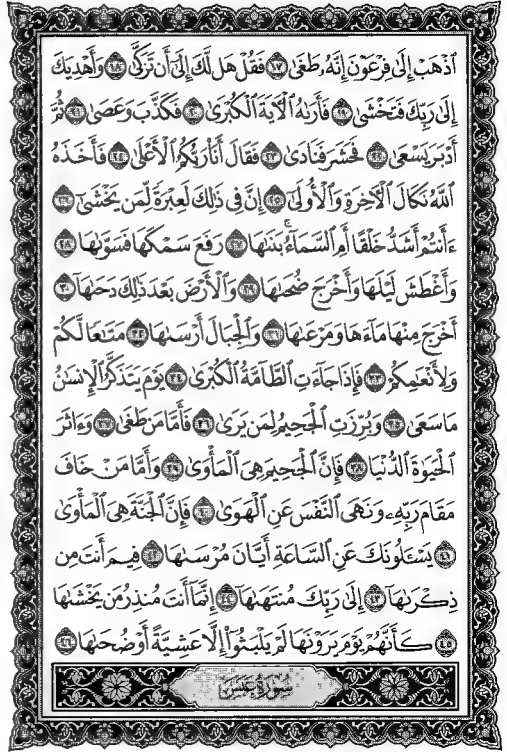 ٱذْهَبْ إِلَىٰ فِرْعَوْنَ إِنَّهُۥ طَغَىٰ ١٧ فَقُلْ هَل لَّكَ إِلَىٰٓ أَن تَزَكَّىٰ ١٨ وَأَهْدِيَكَ
إِلَىٰ رَبِّكَ فَتَخْشَىٰ ١٩ فَأَرَىٰهُ ٱلْـَٔايَةَ ٱلْكُبْرَىٰ ٢٠ فَكَذَّبَ وَعَصَىٰ ٢١ ثُمَّ
أَدْبَرَ يَسْعَىٰ ٢٢ فَحَشَرَ فَنَادَىٰ ٢٣ فَقَالَ أَنَا۠ رَبُّكُمُ ٱلْأَعْلَىٰ ٢٤ فَأَخَذَهُ
ٱللَّهُ نَكَالَ ٱلْـَٔاخِرَةِ وَٱلْأُولَىٰٓ ٢٥ إِنَّ فِى ذَٰلِكَ لَعِبْرَةً لِّمَن يَخْشَىٰٓ ٢٦
ءَأَنتُمْ أَشَدُّ خَلْقًا أَمِ ٱلسَّمَآءُ ۚ بَنَىٰهَا ٢٧ رَفَعَ سَمْكَهَا فَسَوَّىٰهَا ٢٨
وَأَغْطَشَ لَيْلَهَا وَأَخْرَجَ ضُحَىٰهَا ٢٩ وَٱلْأَرْضَ بَعْدَ ذَٰلِكَ دَحَىٰهَآ ٣٠
أَخْرَجَ مِنْهَا مَآءَهَا وَمَرْعَىٰهَا ٣١ وَٱلْجِبَالَ أَرْسَىٰهَا ٣٢ مَتَـٰعًا لَّكُمْ
وَلِأَنْعَـٰمِكُمْ ٣٣ فَإِذَا جَآءَتِ ٱلطَّآمَّةُ ٱلْكُبْرَىٰ ٣٤ يَوْمَ يَتَذَكَّرُ ٱلْإِنسَـٰنُ
مَا سَعَىٰ ٣٥ وَبُرِّزَتِ ٱلْجَحِيمُ لِمَن يَرَىٰ ٣٦ فَأَمَّا مَن طَغَىٰ ٣٧ وَءَاثَرَ
ٱلْحَيَوٰةَ ٱلدُّنْيَا ٣٨ فَإِنَّ ٱلْجَحِيمَ هِىَ ٱلْمَأْوَىٰ ٣٩ وَأَمَّا مَنْ خَافَ
مَقَامَ رَبِّهِۦ وَنَهَى ٱلنَّفْسَ عَنِ ٱلْهَوَىٰ ٤٠ فَإِنَّ ٱلْجَنَّةَ هِىَ ٱلْمَأْوَىٰ
٤١ يَسْـَٔلُونَكَ عَنِ ٱلسَّاعَةِ أَيَّانَ مُرْسَىٰهَا ٤٢ فِيمَ أَنتَ مِن
ذِكْرَىٰهَآ ٤٣ إِلَىٰ رَبِّكَ مُنتَهَىٰهَآ ٤٤ إِنَّمَآ أَنتَ مُنذِرُ مَن يَخْشَىٰهَا
٤٥ كَأَنَّهُمْ يَوْمَ يَرَوْنَهَا لَمْ يَلْبَثُوٓا۟ إِلَّا عَشِيَّةً أَوْ ضُحَىٰهَا ٤٦
سُورَةُ عَبَسَ